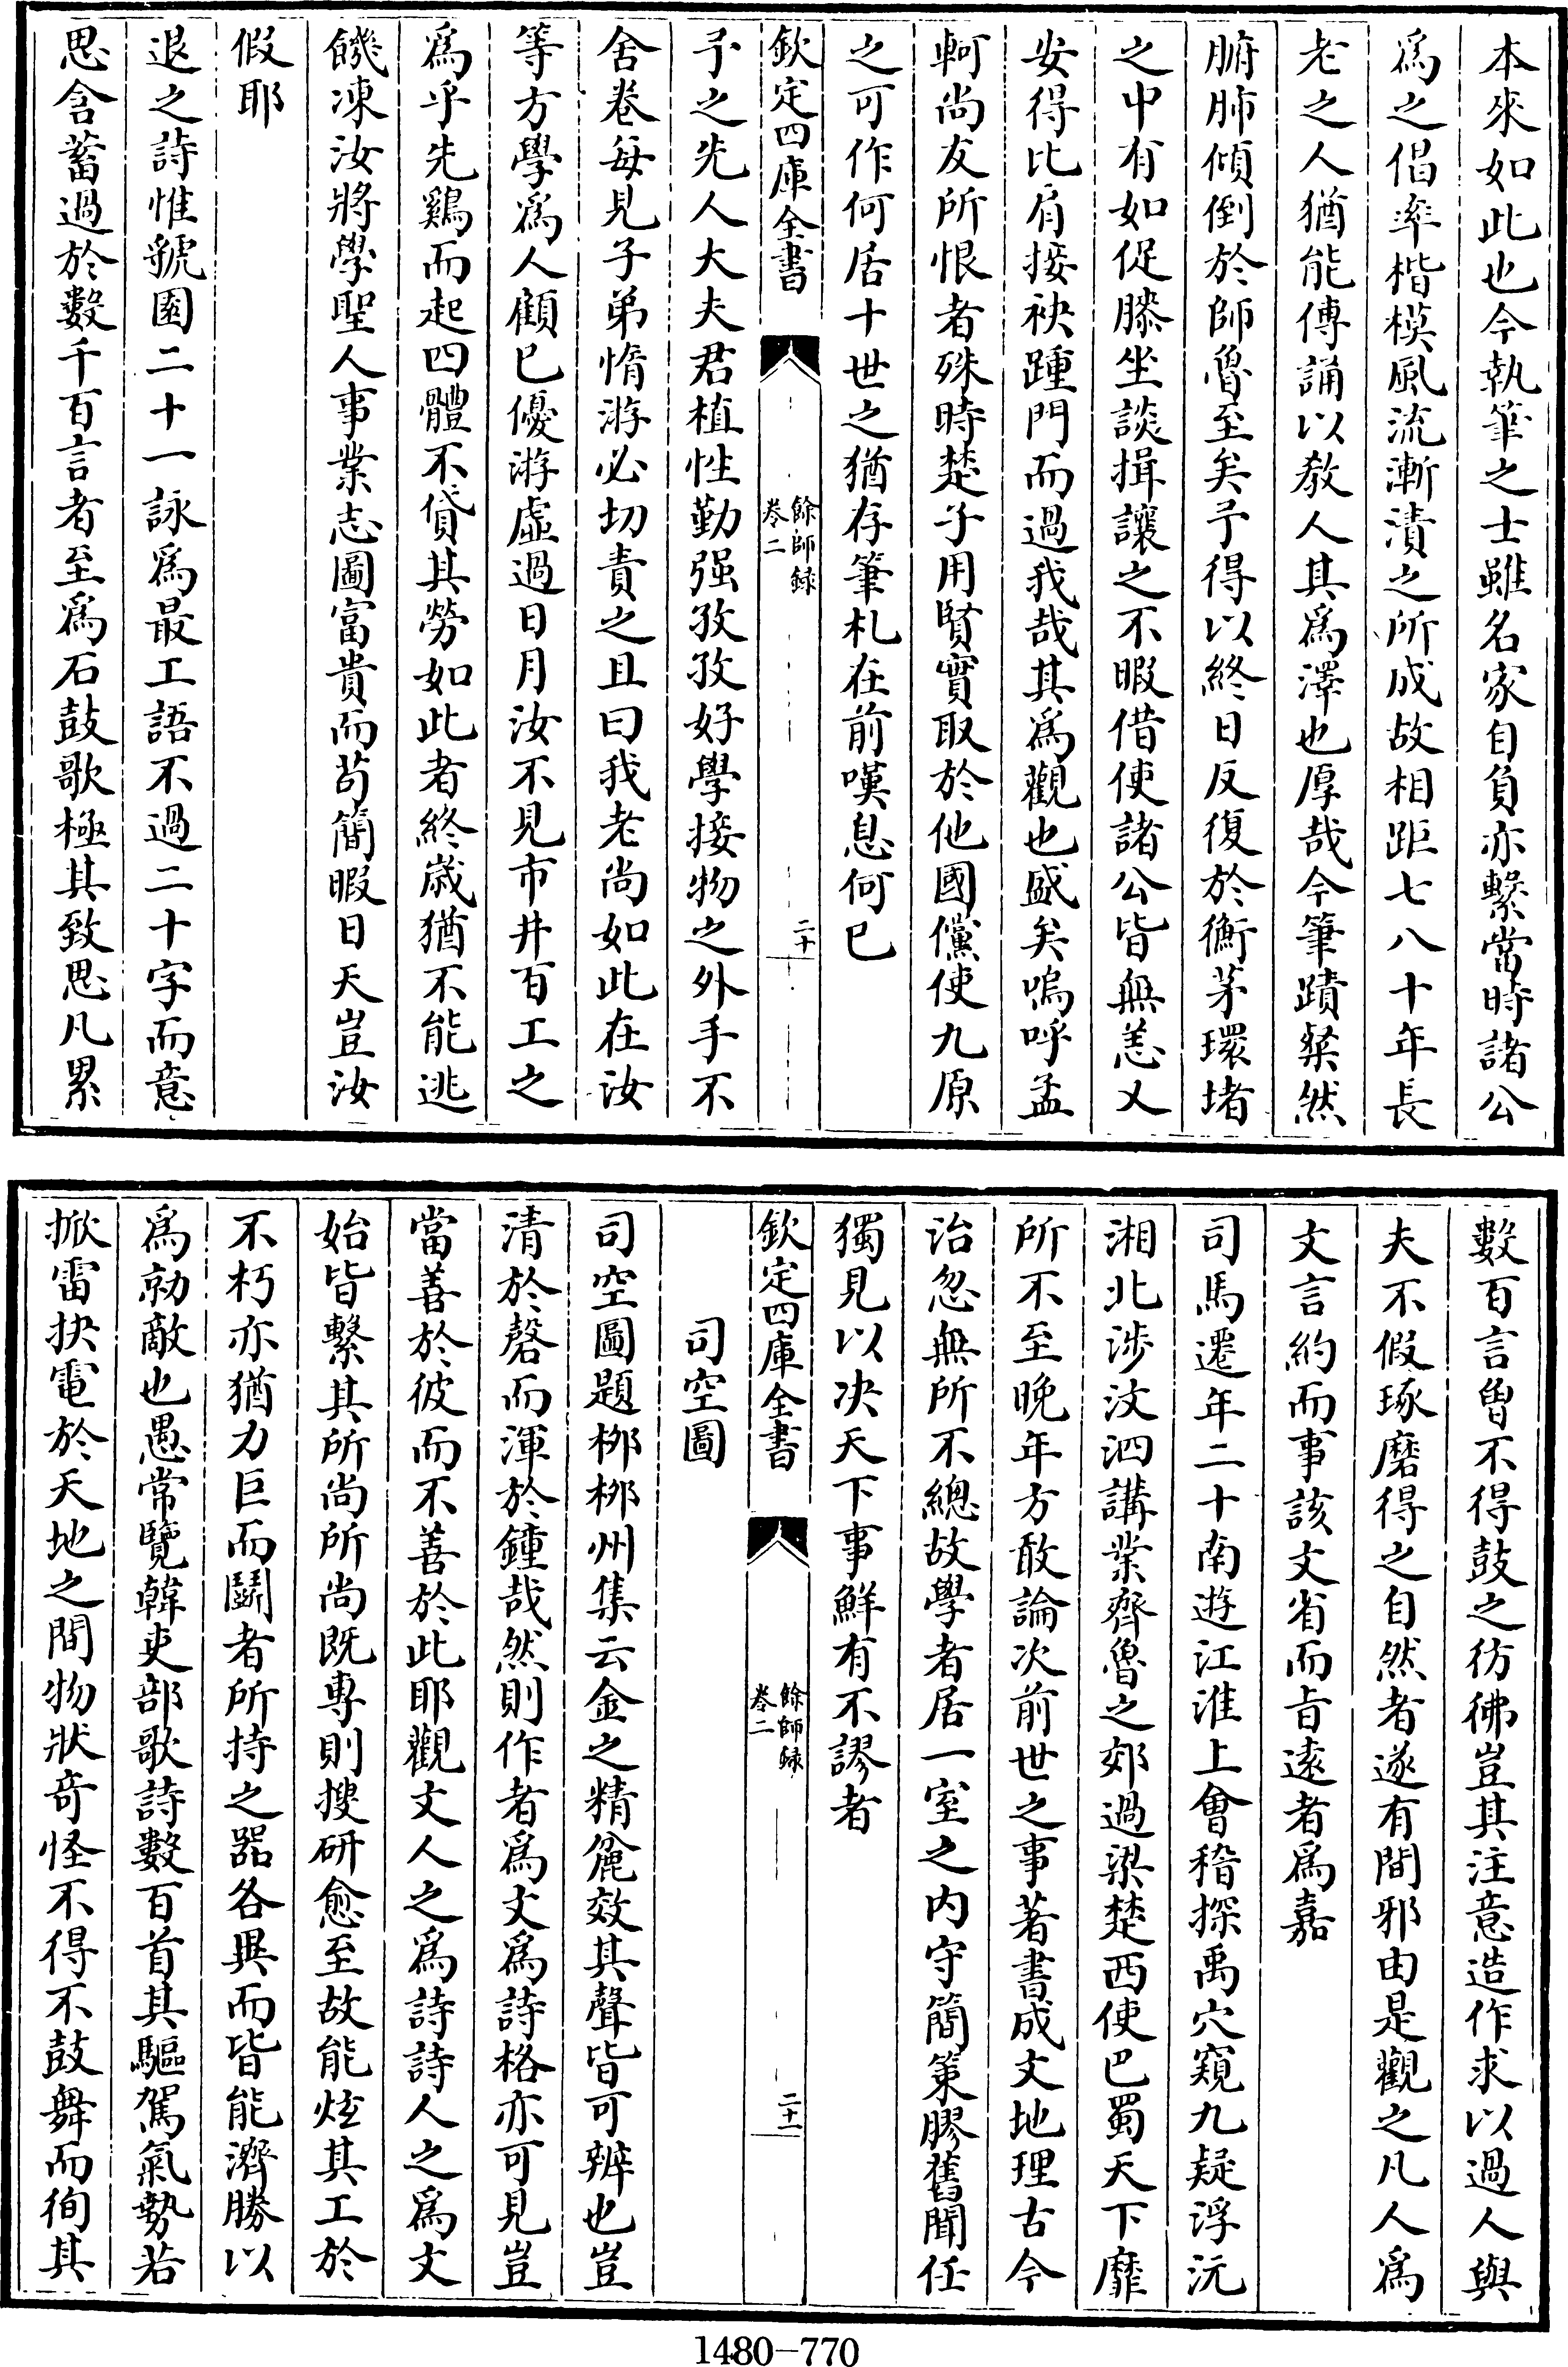 本來如此也今執筆之士雖名家自負亦繫當時諸公
爲之倡率楷模風流漸漬之所成故相距七八十年長
老之人猶能傳誦以教人其爲澤也厚哉今筆蹟粲然
腑肺傾倒於師魯至矣予得以終日反復於衡茅環堵
之中有如促膝坐談揖讓之不暇借使諸公皆無恙又
安得比肩接袂踵門而過我哉其爲觀也盛矣嗚呼孟
軻尚友所恨者殊時楚子用賢實取於他國儻使九原
之可作何居十世之猶存筆札在前嘆息何已
欽定四庫全書 餘師録 卷二 二十
予之先人大夫君植性勤强孜孜好學接物之外手不
舍卷每見子弟惰游必切責之且曰我老尚如此在汝
等方學爲人顧已優游虛過日月汝不見市井百工之
爲乎先鷄而起四體不貸其勞如此者終歳猶不能逃
饑凍汝將學聖人事業志圖富貴而苟簡暇日天豈汝
假耶
退之詩惟虢園二十一詠爲最工語不過二十字而意
思含蓄過於數千百言者至爲石鼓歌極其致思凡累
數百言曾不得鼓之彷彿豈其注意造作求以過人與
夫不假琢磨得之自然者遂有間邪由是觀之凡人爲
文言約而事該文省而旨遠者爲嘉
司馬遷年二十南遊江淮上會稽探禹穴窺九疑浮沅
湘北涉汶泗講業齊魯之郊過梁楚西使巴蜀天下靡
所不至晚年方敢論次前世之事著書成文地理古今
治忽無所不總故學者居一室之内守簡策膠舊聞任
獨見以决天下事鮮有不謬者
欽定四庫全書 餘師録 卷二 二十一
司空圖
司空圖題栁栁州集云金之精麄效其聲皆可辨也豈
清於磬而渾於鐘哉然則作者爲文爲詩格亦可見豈
當善於彼而不善於此耶觀文人之爲詩詩人之爲文
始皆繫其所尚所尚既專則搜研愈至故能炫其工於
不朽亦猶力巨而鬭者所持之器各異而皆能濟勝以
爲勍敵也愚常覽韓吏部歌詩數百首其驅駕氣勢若
掀雷抉電於天地之間物狀奇怪不得不鼓舞而徇其
1480-770